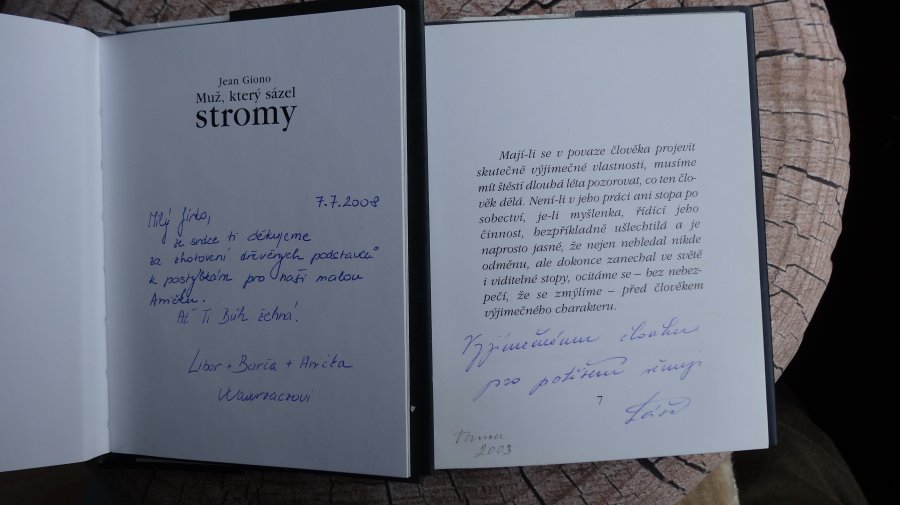 Jean Giono
Muž, který sázel
stromy
7.7.2008
Milý Jirko,
ze srdce ti děkujeme
za zhotovení dřevěných podstavců
k postýlkám pro naši malou
Aničku.
Ať Ti Bůh žehná!
Libor + Barča + Anička
Wawrzaczovi
Mají-li se v povaze člověka projevit
skutečně výjimečné vlastnosti, musíme
mít štěstí dlouhá léta pozorovat, co ten člo-
věk dělá. Není-li v jeho práci ani stopa po
sobectví, je-li myšlenka, řídící jeho
činnost, bezpříkladně ušlechtilá a je
naprosto jasné, že nejen nehledal nikde
odměnu, ale dokonce zanechal ve světě
i viditelné stopy, ocitáme se – bez nebez-
pečí, že se zmýlíme – před člověkem
výjimečného charakteru.
Vyjímečnému človíku
pro potěšení věnuji
7
2003